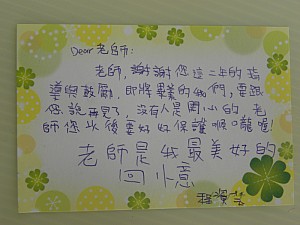 Dear老師:
老師,謝謝您這二年的
導與鼓勵,即將畢業的我們,要跟
您說再見了,沒有人是開心的,老
師您以後要好好保護喉嚨喔!
老師是我最美好的
回憶